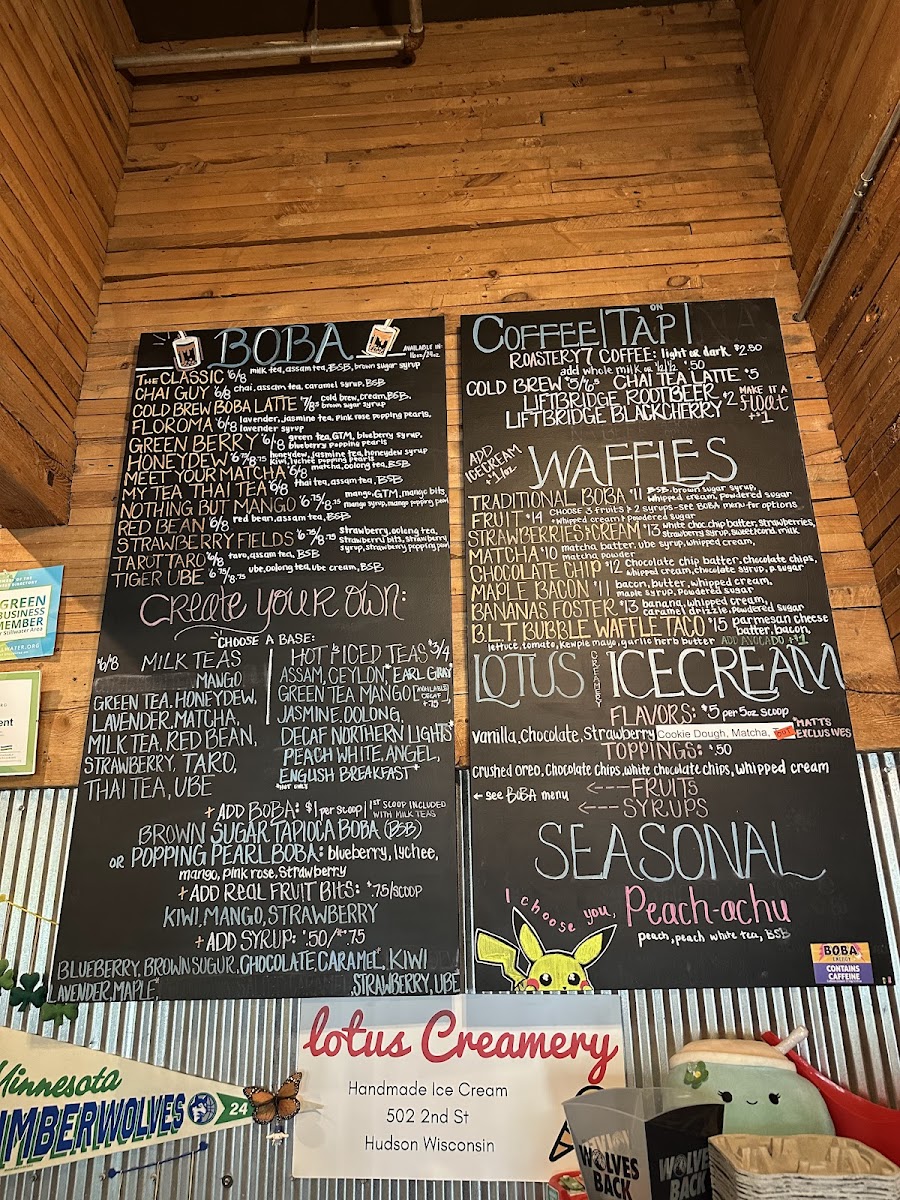 BOBA
AVAILABLE IN:
16oz/24oz
THE CLASSIC $6/8 milk tea, assam tea, BSB, brown sugar syrup
CHAI GUY $6/8 chai, assam tea, caramel syrup, BSB
COLD BREW BOBA LATTE $7/8.5 cold brew, cream, BSB,
brown sugar syrup
FLOROMA $6/8 lavender, jasmine tea, pink rose popping pearls,
lavender syrup
GREEN BERRY $6/8 green tea, GTM, blueberry syrup,
blueberry popping pearls
HONEYDEW $6.75/8.75 honeydew, jasmine tea, honeydew syrup
kiwi, lychee popping pearls
MEET YOUR MATCHA $6/8 matcha, oolong tea, BSB
MY TEA THAI TEA $6/8 thai tea, assam tea, BSB
NOTHING BUT MANGO $6.75/8.75 mango, GTM, mango bits,
mango syrup, mango popping pearls
RED BEAN $6/8 red bean, assam tea, BSB
STRAWBERRY FIELDS $6.75/8.75 strawberry, oolong tea,
strawberry bits, strawberry
syrup, strawberry popping pearls
TAROT TARO $6/8 taro, assam tea, BSB
TIGER UBE $6.75/8.75 ube, oolong tea, ube cream, BSB
CREATE YOUR OWN:
CHOOSE A BASE:
$6/8 MILK TEAS
MANGO,
GREEN TEA, HONEYDEW,
LAVENDER, MATCHA,
MILK TEA, RED BEAN,
STRAWBERRY, TARO,
THAI TEA, UBE
HOT | ICED TEAS $3/4
ASSAM, CEYLON, EARL GRAY
GREEN TEA MANGO
AVAILABLE
DECAF
JASMINE, OOLONG,
DECAF NORTHERN LIGHTS*
PEACH WHITE, ANGEL,
ENGLISH BREAKFAST*
*HOT ONLY
+ ADD BOBA: $1 per scoop | 1ST SCOOP INCLUDED
WITH MILK TEAS
BROWN SUGAR TAPIOCA BOBA (BSB)
OR POPPING PEARL BOBA: blueberry, lychee,
mango, pink rose, strawberry
+ ADD REAL FRUIT BITS: $.75/SCOOP
KIWI, MANGO, STRAWBERRY
+ ADD SYRUP: $.50/*$.75
BLUEBERRY, BROWN SUGUR, CHOCOLATE, CARAMEL*, KIWI
LAVENDER, MAPLE*, STRAWBERRY, UBE
COFFEE | ON TAP |
ROASTERY 7 COFFEE: light or dark $2.50
add whole milk or 1/2 1/2 $.50
COLD BREW $5/6.5 CHAI TEA LATTE $5
LIFTBRIDGE ROOTBEER
LIFTBRIDGE BLACKCHERRY $2
MAKE IT A
float
+$1
ADD
ICECREAM
+$1/oz
WAFFLES
TRADITIONAL BOBA $11 BSB, brown sugar syrup,
whipped cream, powdered sugar
FRUIT $14 CHOOSE 3 fruits & 2 syrups - see BOBA menu for options
+ whipped cream & powdered sugar
STRAWBERRIES & CREAM $13 white choc. chip batter, strawberries,
strawberry syrup, sweet cond. milk
MATCHA $10 matcha batter, ube syrup, whipped cream,
matcha powder
CHOCOLATE CHIP $12 chocolate chip batter, chocolate chips,
whipped cream, chocolate syrup, p.sugar
MAPLE BACON $11 bacon, butter, whipped cream,
maple syrup, powdered sugar
BANANAS FOSTER $13 banana, whipped cream,
caramel drizzle, powdered sugar
B.L.T. BUBBLE WAFFLE TACO $15 parmesan cheese
batter, bacon,
lettuce, tomato, kewpie mayo, garlic herb butter ADD AVOCADO +$1
LOTUS CREAMERY ICECREAM
FLAVORS: $5 per 5oz scoop
vanilla, chocolate, Strawberry Cookie Dough, Matcha, MATTS
EXCLUSIVES
TOPPINGS: $.50
crushed oreo, chocolate chips, white chocolate chips, whipped cream
← see BOBA menu ←--- FRUITS
←--- SYRUPS
SEASONAL
I choose you, Peach-achu
peach, peach white tea, BSB
BOBA
ENERGY
CONTAINS
CAFFEINE
GREEN
BUSINESS
MEMBER
lotus Creamery
Handmade Ice Cream
502 2nd St
Hudson Wisconsin
Minnesota
TIMBERWOLVES
24
WOLVES
BACK
WOLVES
BACK